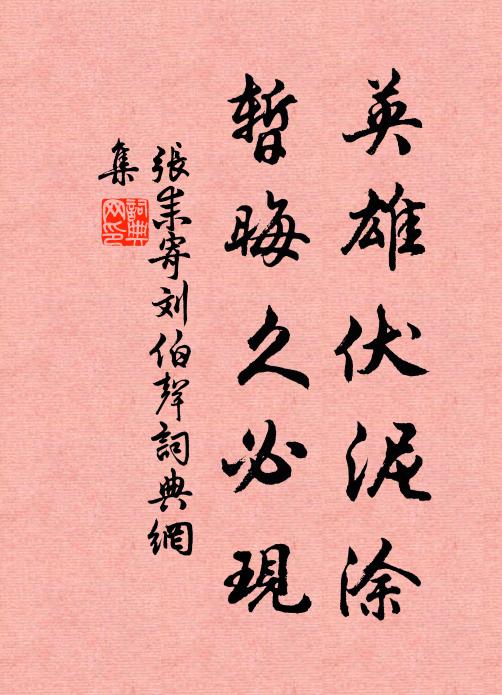 英雄伏泥涂
暂晦久必現
張耒寄刘伯聲詞典網
集
詞典
网印